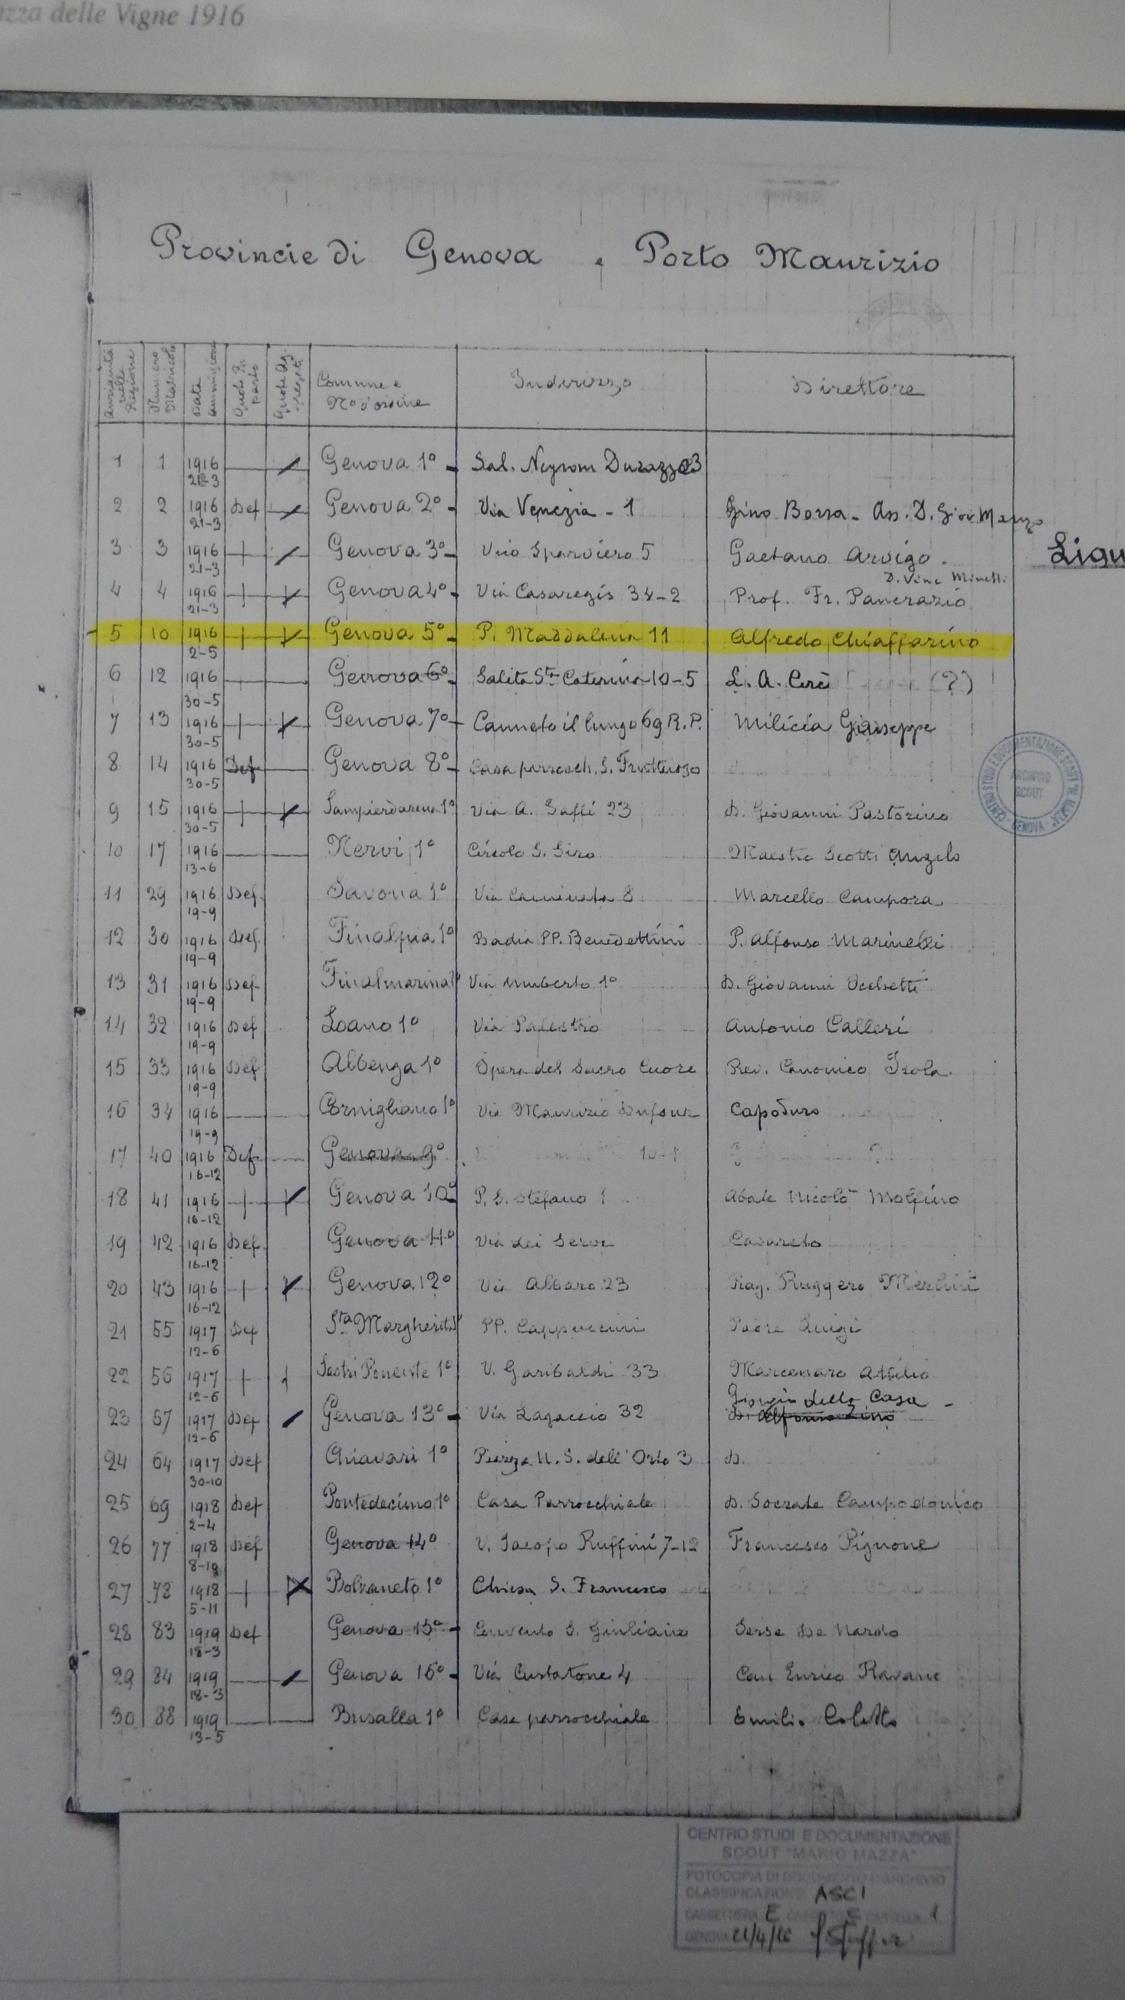 azza delle Vigne 1916
Provincie di Genova e Porto Maurizio
Anzianità nella Regione Numero Matricola Data ammissione Quote Comune e N° d'ordine Indirizzo Direttore
1 1 1916 21-3 Genova 1° Sal. Durazzo 3
2 2 1916 21-3 Def Genova 2° Via Venezia - 1 Gino Borsa - As. D. Giov. Manzo
3 3 1916 21-3 Genova 3° Vico Sparviero 5 Gaetano Arvigo
Ligu
D. Vinc Minetti
4 4 1916 21-3 Genova 4° Via Casaregis 34-2 Prof. Fr. Pancrazio
5 10 1916 2-5 Genova 5° P. Maddalena 11 Alfredo Chiaffarino
6 12 1916 30-5 Genova 6° Salita Sta Caterina 10-5 L. A. Cerè (?)
7 13 1916 30-5 Genova 7° Canneto il lungo 69 R.P. Milicia Giuseppe
8 14 1916 30-5 Def Genova 8° Casa parrocch. S. Fruttuoso
9 15 1916 30-5 Sampierdarena 1° Via A. Saffi 23 D. Giovanni Pastorino
10 17 1916 13-6 Nervi 1° Circolo S. Siro Maestro Scotti Angelo
11 29 1916 19-9 Def Savona 1° Via 8 Marcello Campora
12 30 1916 19-9 Def Finalpia 1° Badia PP. Benedettini P. Alfonso Marinelli
13 31 1916 19-9 Def Finalmarina 1° Via Umberto 1° D. Giovanni
14 32 1916 19-9 Def Loano 1° Via Palestro Antonio Calleri
15 33 1916 19-9 Def Albenga 1° Opera del Sacro Cuore Rev. Canonico Isola
16 34 1916 19-9 Cornigliano 1° Via Maurizio Dufour Capoduro
17 40 1916 16-12 Def Genova 9° 10-1
18 41 1916 16-12 Genova 10° P. S. Stefano 1 Abate Nicolò Molfino
19 42 1916 16-12 Def Genova 11° Via dei Servi Casareto
20 43 1916 16-12 Genova 12° Via Albaro 23 Rag. Ruggero
21 55 1917 12-6 Def Sta Margherita 1° PP. Cappuccini Padre Luigi
22 56 1917 12-6 Sestri Ponente 1° V. Garibaldi 33 Marcenaro Attilio
Giorgio della Casa
23 57 1917 12-6 Def Genova 13° Via Lagaccio 32 D. Alfonso Zino
24 64 1917 30-10 Def Chiavari 1° Piazza N. S. dell'Orto 3 D.
25 69 1918 2-4 Def Pontedecimo 1° Casa Parrocchiale D. Socrate Campodonico
26 77 1918 8-10 Def Genova 14° V. Jacopo Ruffini 7-12 Francesco Pignone
27 78 1918 5-11 Bolzaneto 1° Chiesa S. Francesco
28 83 1919 18-3 Def Genova 15° Convento S. Giuliano Serse De Nardo
29 84 1919 18-3 Genova 16° Via Curtatone 4 Can Enrico Ravano
30 88 1919 13-5 Busalla 1° Casa parrocchiale Emilio Coletto
CENTRO STUDI E DOCUMENTAZIONE SCOUT "M. MAZZA" - GENOVA -
ARCHIVIO
SCOUT
CENTRO STUDI E DOCUMENTAZIONE
SCOUT "MARIO MAZZA"
FOTOCOPIA DI DOCUMENTO D'ARCHIVIO
CLASSIFICAZIONE ASCI
CASSETTIERA E CASSETTO E CARTELLA 1
GENOVA 21/4/16